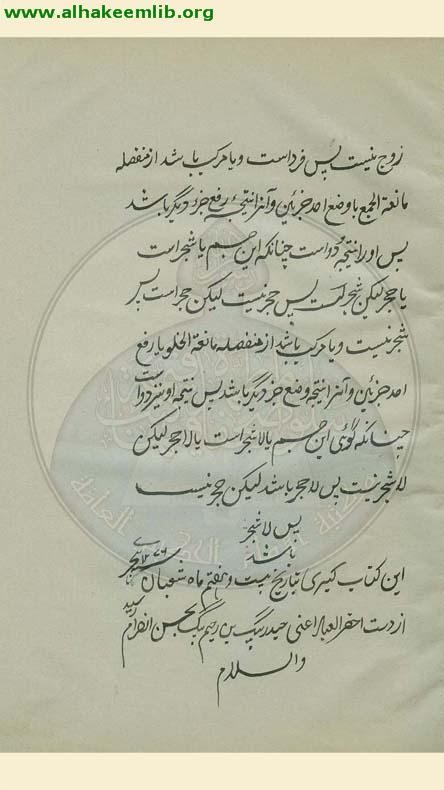 www.alhakeemlib.org
زوج نیست پس فرد است و یا مرکب باشد از منفصله
مانعة الجمع با وضع احد جزئین و آنرا نتیجه رفع جزء دیگر باشد
پس او را نتیجه دو است چنانکه این جسم یا شجر است
یا حجر لیکن شجر است پس حجر نیست لیکن حجر است پس
شجر نیست و یا مرکب باشد از منفصله مانعة الخلو با رفع
احد جزئین و آنرا نتیجه وضع جزء دیگر باشد پس نتیجه او نیز دو است
چنانکه گوئی این جسم یا لا شجر است یا لا حجر لیکن
لا شجر نیست پس لا حجر باشد لیکن لا حجر نیست
پس لا شجر
باشد
این کتاب کبری بتاریخ بیست و هفتم ماه شعبان
از دست احقر العباد اعنی حیدر بیگ بن رحیم بیگ بحسن انصرام رسید
والسلام